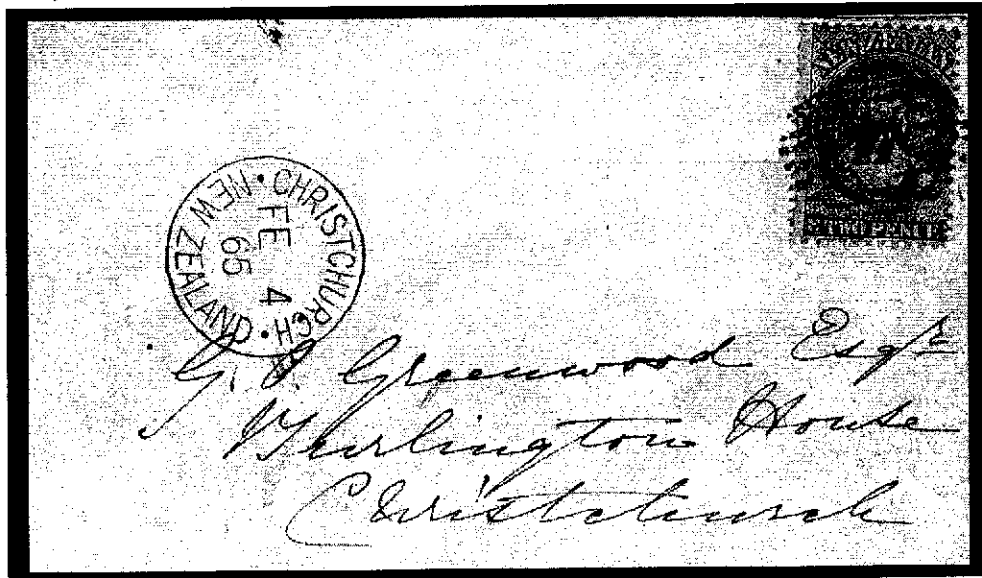 NEW ZEALAND
TWO PENCE
CHRISTCHURCH
FE 4
65
NEW ZEALAND
G. O. Greenwood Esqr
Burlington House
Christchurch